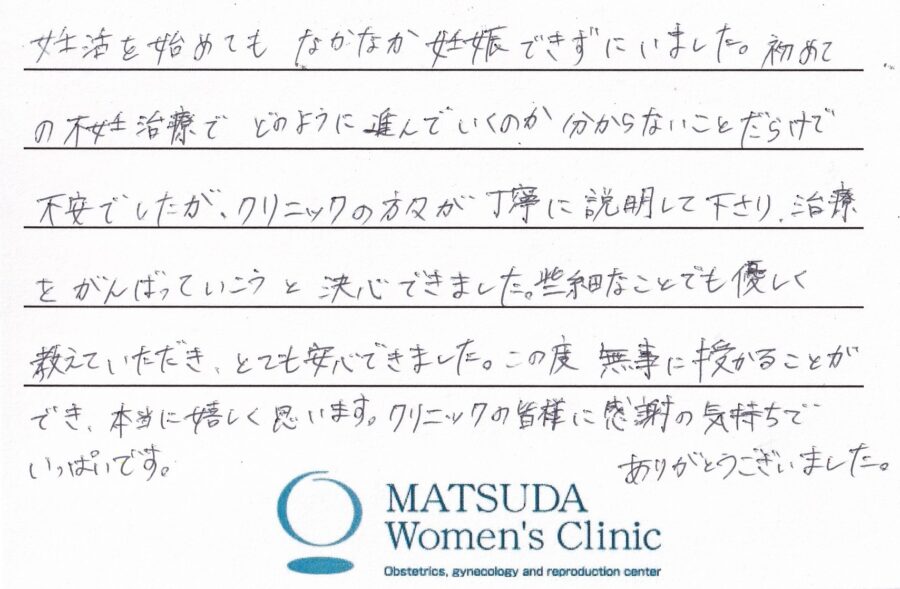 妊活を始めても なかなか妊娠できずにいました。初めて
の不妊治療で どのように進んでいくのか 分からないことだらけで
不安でしたが、クリニックの方々が 丁寧に説明して下さり、治療
を がんばっていこうと 決心できました。些細なことでも優しく
教えていただき、とても安心できました。この度 無事に授かることが
でき、本当に嬉しく思います。クリニックの皆様に感謝の気持ちで
いっぱいです。 ありがとうございました。
MATSUDA
Women's Clinic
Obstetrics, gynecology and reproduction center